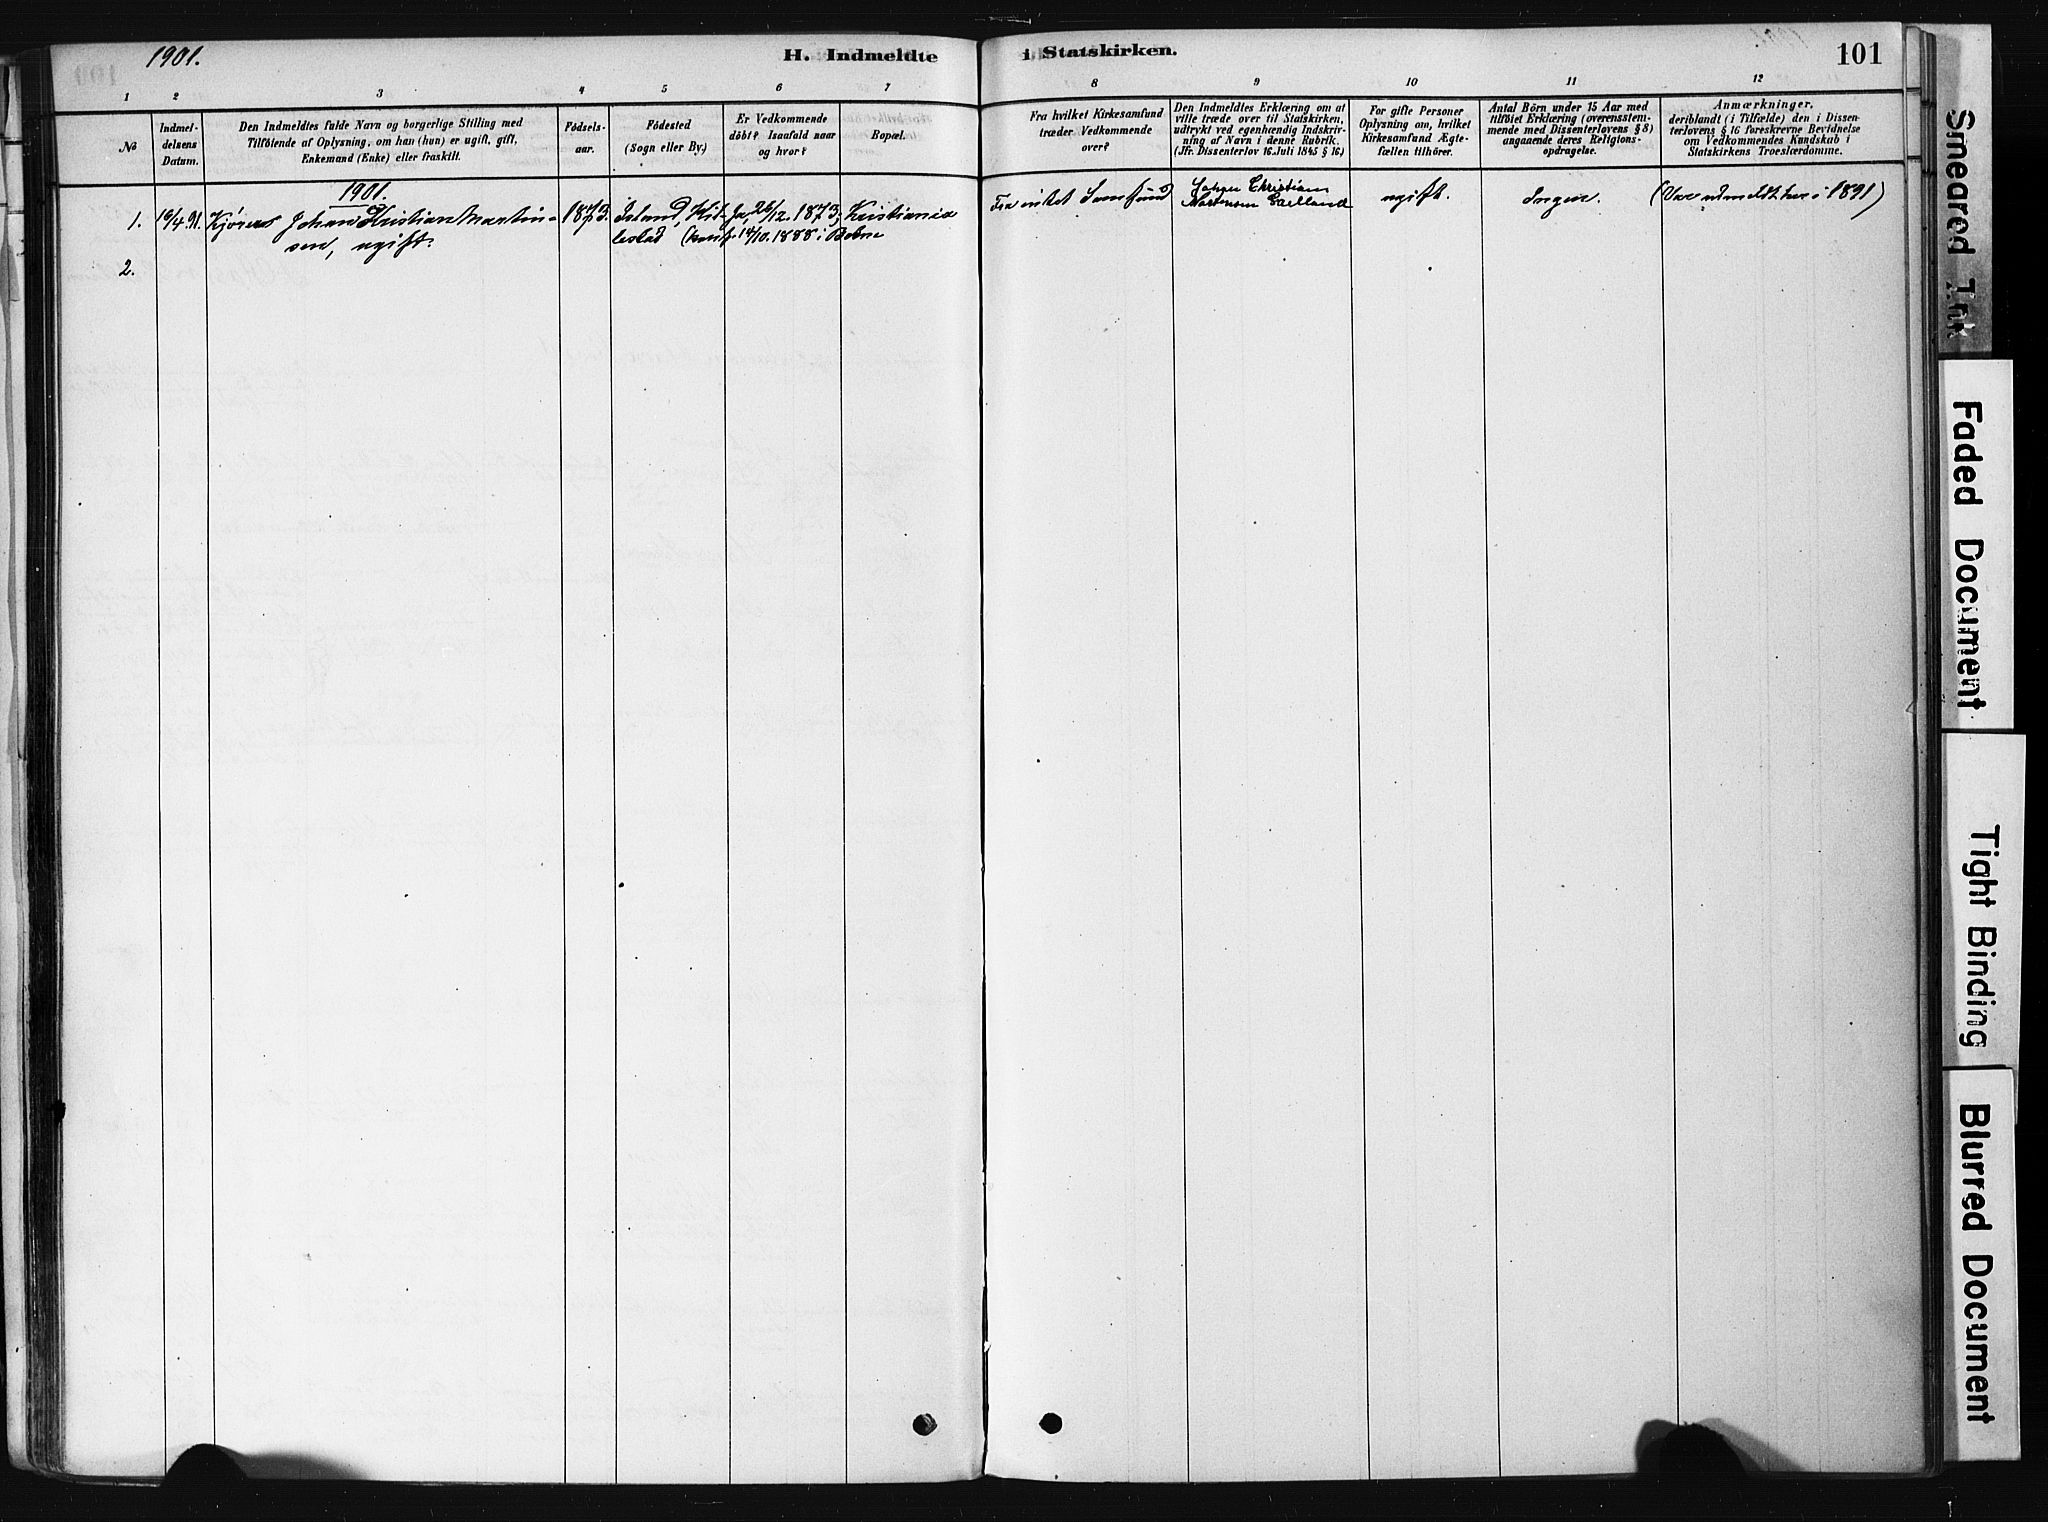 1901.
H. Indmeldte i Statskirken.
101
1 2 3 4 5 6 7 8 9 10 11 12
No
Indmel-
delsens
Datum.
Den Indmeldtes fulde Navn og borgerlige Stilling med
Tilföiende af Oplysning, om han (hun) er ugift, gift,
Enkemand (Enke) eller fraskilt.
Födsels-
aar.
Födested
(Sogn eller By.)
Er Vedkommende
döbt? Isaafald naar
og hvor?
Bopæl.
Fra hvilket Kirkesamfund
træder Vedkommende
over?
Den Indmeldtes Erklæring om at
ville træde over til Statskirken,
udtrykt ved egenhændig Indskriv-
ning af Navn i denne Rubrik.
(Jfr. Dissenterlov 16. Juli 1845 § 16.)
For gifte Personer
Oplysning om, hvilket
Kirkesamfund Ægte-
fællen tilhörer.
Antal Börn under 15 Aar med
tilföiet Erklæring (overensstem-
mende med Dissenterlovens § 8)
angaaende deres Religions-
opdragelse.
Anmærkninger,
deriblandt (i Tilfælde) den i Dissen-
terlovens § 16 foreskrevne Bevidnelse
om Vedkommendes Kundskab i
Statskirkens Troeslærdomme.
1901.
1. 16/4.91. Johan Kristian Martin-
sen, ugift.
1873.
26/12.1873,
1888 i
Kristiania
Fra intet Samfund
Christian
ugift.
Ingen.
(Var udmeldt her i 1891)
2.
Smeared Ink
Faded Document
Tight Binding
Blurred Document